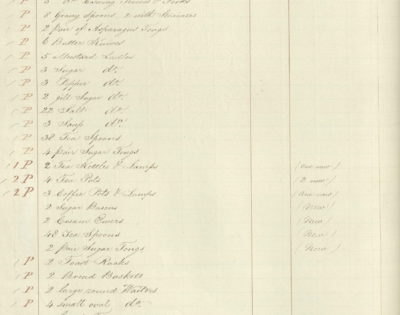 P 8 Gravy spoons, 2 with
P 2 Pair of Asparagus Tongs
P 6 Butter Knives
P 5 Mustard Ladles
P 3 Sugar do.
P 3 Pepper do.
P 2 gilt Sugar do.
P 22 Salt do.
P 3 Soup do.
P 38 Tea Spoons
P 4 pair Sugar Tongs
1 P 2 Tea Kettles & Lamps (one new)
2 P 4 Tea Pots (2 new)
2 P 3 Coffee Pots & Lamps (one new)
2 Sugar Basins (New)
2 Cream Ewers (New)
48 Tea Spoons (New)
2 Pair Sugar Tongs (New)
P 2 Toast Racks
P 2 Bread Baskets
P 2 large round Waiters
P 4 small oval do.